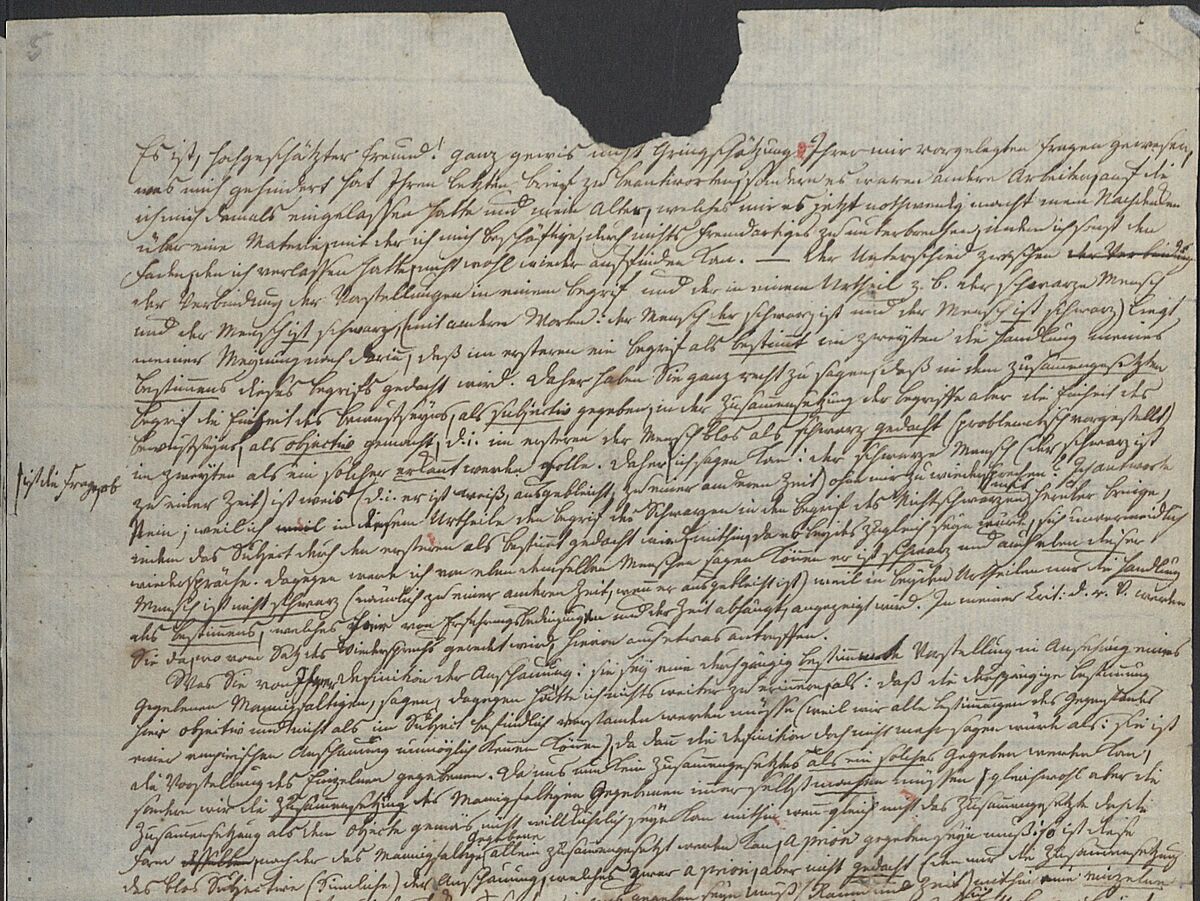 5
Es ist, hochgeschätzter Freund! ganz gewis nicht Gringschätzung Ihrer mir vorgelegten Fragen gewesen,
was mich gehindert hat Ihren letzten Brief zu beantworten, sondern es waren andere Arbeiten, auf die
ich mich damals eingelassen hatte und mein Alter, welches mir es jetzt nothwendig macht mein Nachdenken
über eine Materie, mit der ich mich beschäftige, durch nichts fremdartiges zu unterbrechen, indem ich sonst den
Faden, den ich verlassen hatte, nicht wohl wieder auffinden kan. — Der Unterschied zwischen der Verbindung
der Verbindung der Vorstellungen in einem Begrif und der in einem Urtheil z. B. der schwarze Mensch
und der Mensch ist schwarz, (mit andern Worten: der Mensch der schwarz ist und der Mensch ist schwarz) liegt
meiner Meynung nach darinn, daß im ersteren ein Begrif als bestimmt im zweyten die Handlung meines
Bestimmens dieses Begrifs gedacht wird. Daher haben Sie ganz recht zu sagen, daß in dem zusammengesetzten
Begrif die Einheit des Bewustseyns, als subjectiv gegeben, in der Zusammensetzung der Begriffe aber die Einheit des
Bewustseyns, als objectiv gemacht, d. i. im ersteren der Mensch blos als schwarz gedacht (problematisch vorgestellt)
im zweyten als ein solcher erkant werden solle. Daher ich sagen kan: der schwarze Mensch (der schwarz ist
ist die Frage, ob
zu einer Zeit) ist weis (d. i. er ist weiß, ausgebleicht, zu einer anderen Zeit) ohne mir zu wiedersprechen? Ich antworte
Nein; weil ich weil in diesem Urtheile den Begrif des Schwarzen in den Begrif des Nichtschwarzen mit herüber bringe,
indem das Subject durch den ersteren als bestimmt gedacht wird, mithin, da es beydes zugleich seyn würde, sich unvermeidlich
wiederspräche. Dagegen werde ich von eben demselben Menschen sagen können er ist schwarz und auch eben dieser
Mensch ist nicht schwarz (nämlich zu einer anderen Zeit, wenn er ausgebleicht ist) weil in beyden Urtheilen nur die Handlung
des Bestimmens, welches hier von Erfahrungsbedingungen und der Zeit abhängt, angezeigt wird. In meiner Crit: d. r. V. werden
Sie da, wo vom Satz des Wiederspruchs geredet wird, hievon auch etwas antreffen.
Was Sie von Ihrer Definition der Anschauung: sie sey eine durchgängig bestimmte Vorstellung in Ansehung eines
gegebenen Mannigfaltigen, sagen, dagegen hätte ich nichts weiter zu erinnern, als: daß die durchgängige Bestimmung
hier objectiv und nicht als im Subject befindlich verstanden werden müsse (weil wir alle Bestimmungen des Gegenstandes
einer empirischen Anschauung unmöglich kennen können), da dann die Definition doch nicht mehr sagen würde als: sie ist
die Vorstellung des Einzelnen gegebenen. Da uns nun kein Zusammengesetztes als ein solches Gegeben werden kan,
sondern wir die Zusammensetzung des Mannigfaltigen Gegebenen immer selbst machen müssen, gleichwohl aber die
Zusammensetzung als dem Objecte gemäs nicht willkührlich seyn kan mithin wenn gleich nicht das Zusammengesetzte doch die
Form, nach der das Mannigfaltige Gegebene allein zusammengesetzt werden kan, a priori gegeben seyn muß: so ist diese
das blos Subjective (Sinnliche) der Anschauung, welches zwar a priori, aber nicht gedacht (denn nur die Zusammensetzung
gegeben seyn muß Raum und Zeit) mithin eine einzelne